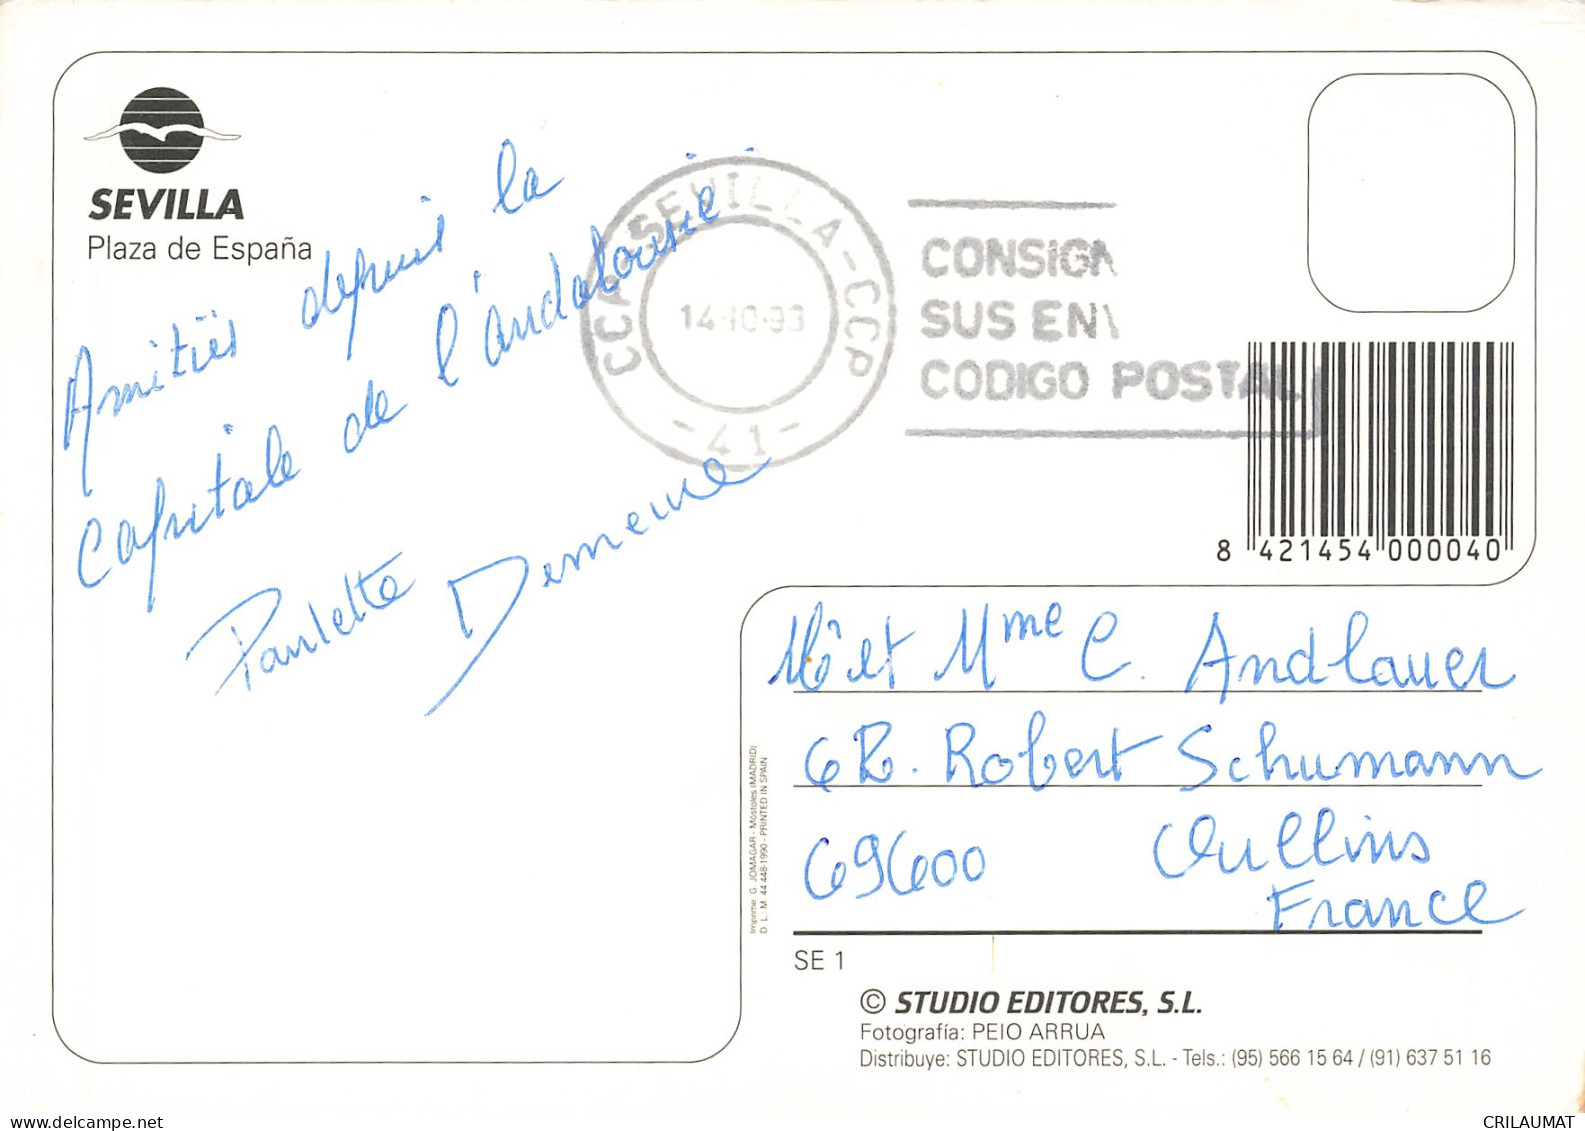 SEVILLA
Plaza de España
Amitiés depuis la
Capitale de l'andalousie
Paulette
CCA-SEVILLA-CCP
14-10-93
-41-
CONSIGN
SUS EN
CODIGO POSTAL
8 421454 000040
Mr et Mme C. Andlauer
6 R. Robert Schumann
69600 Oullins
France
Imprime: G. JOMAGAR - Móstoles (MADRID)
D. L.: M. 44.448-1990 - PRINTED IN SPAIN
SE 1
© STUDIO EDITORES, S.L.
Fotografía: PEIO ARRUA
Distribuye: STUDIO EDITORES, S.L. - Tels.: (95) 566 15 64 / (91) 637 51 16
CRILAUMAT